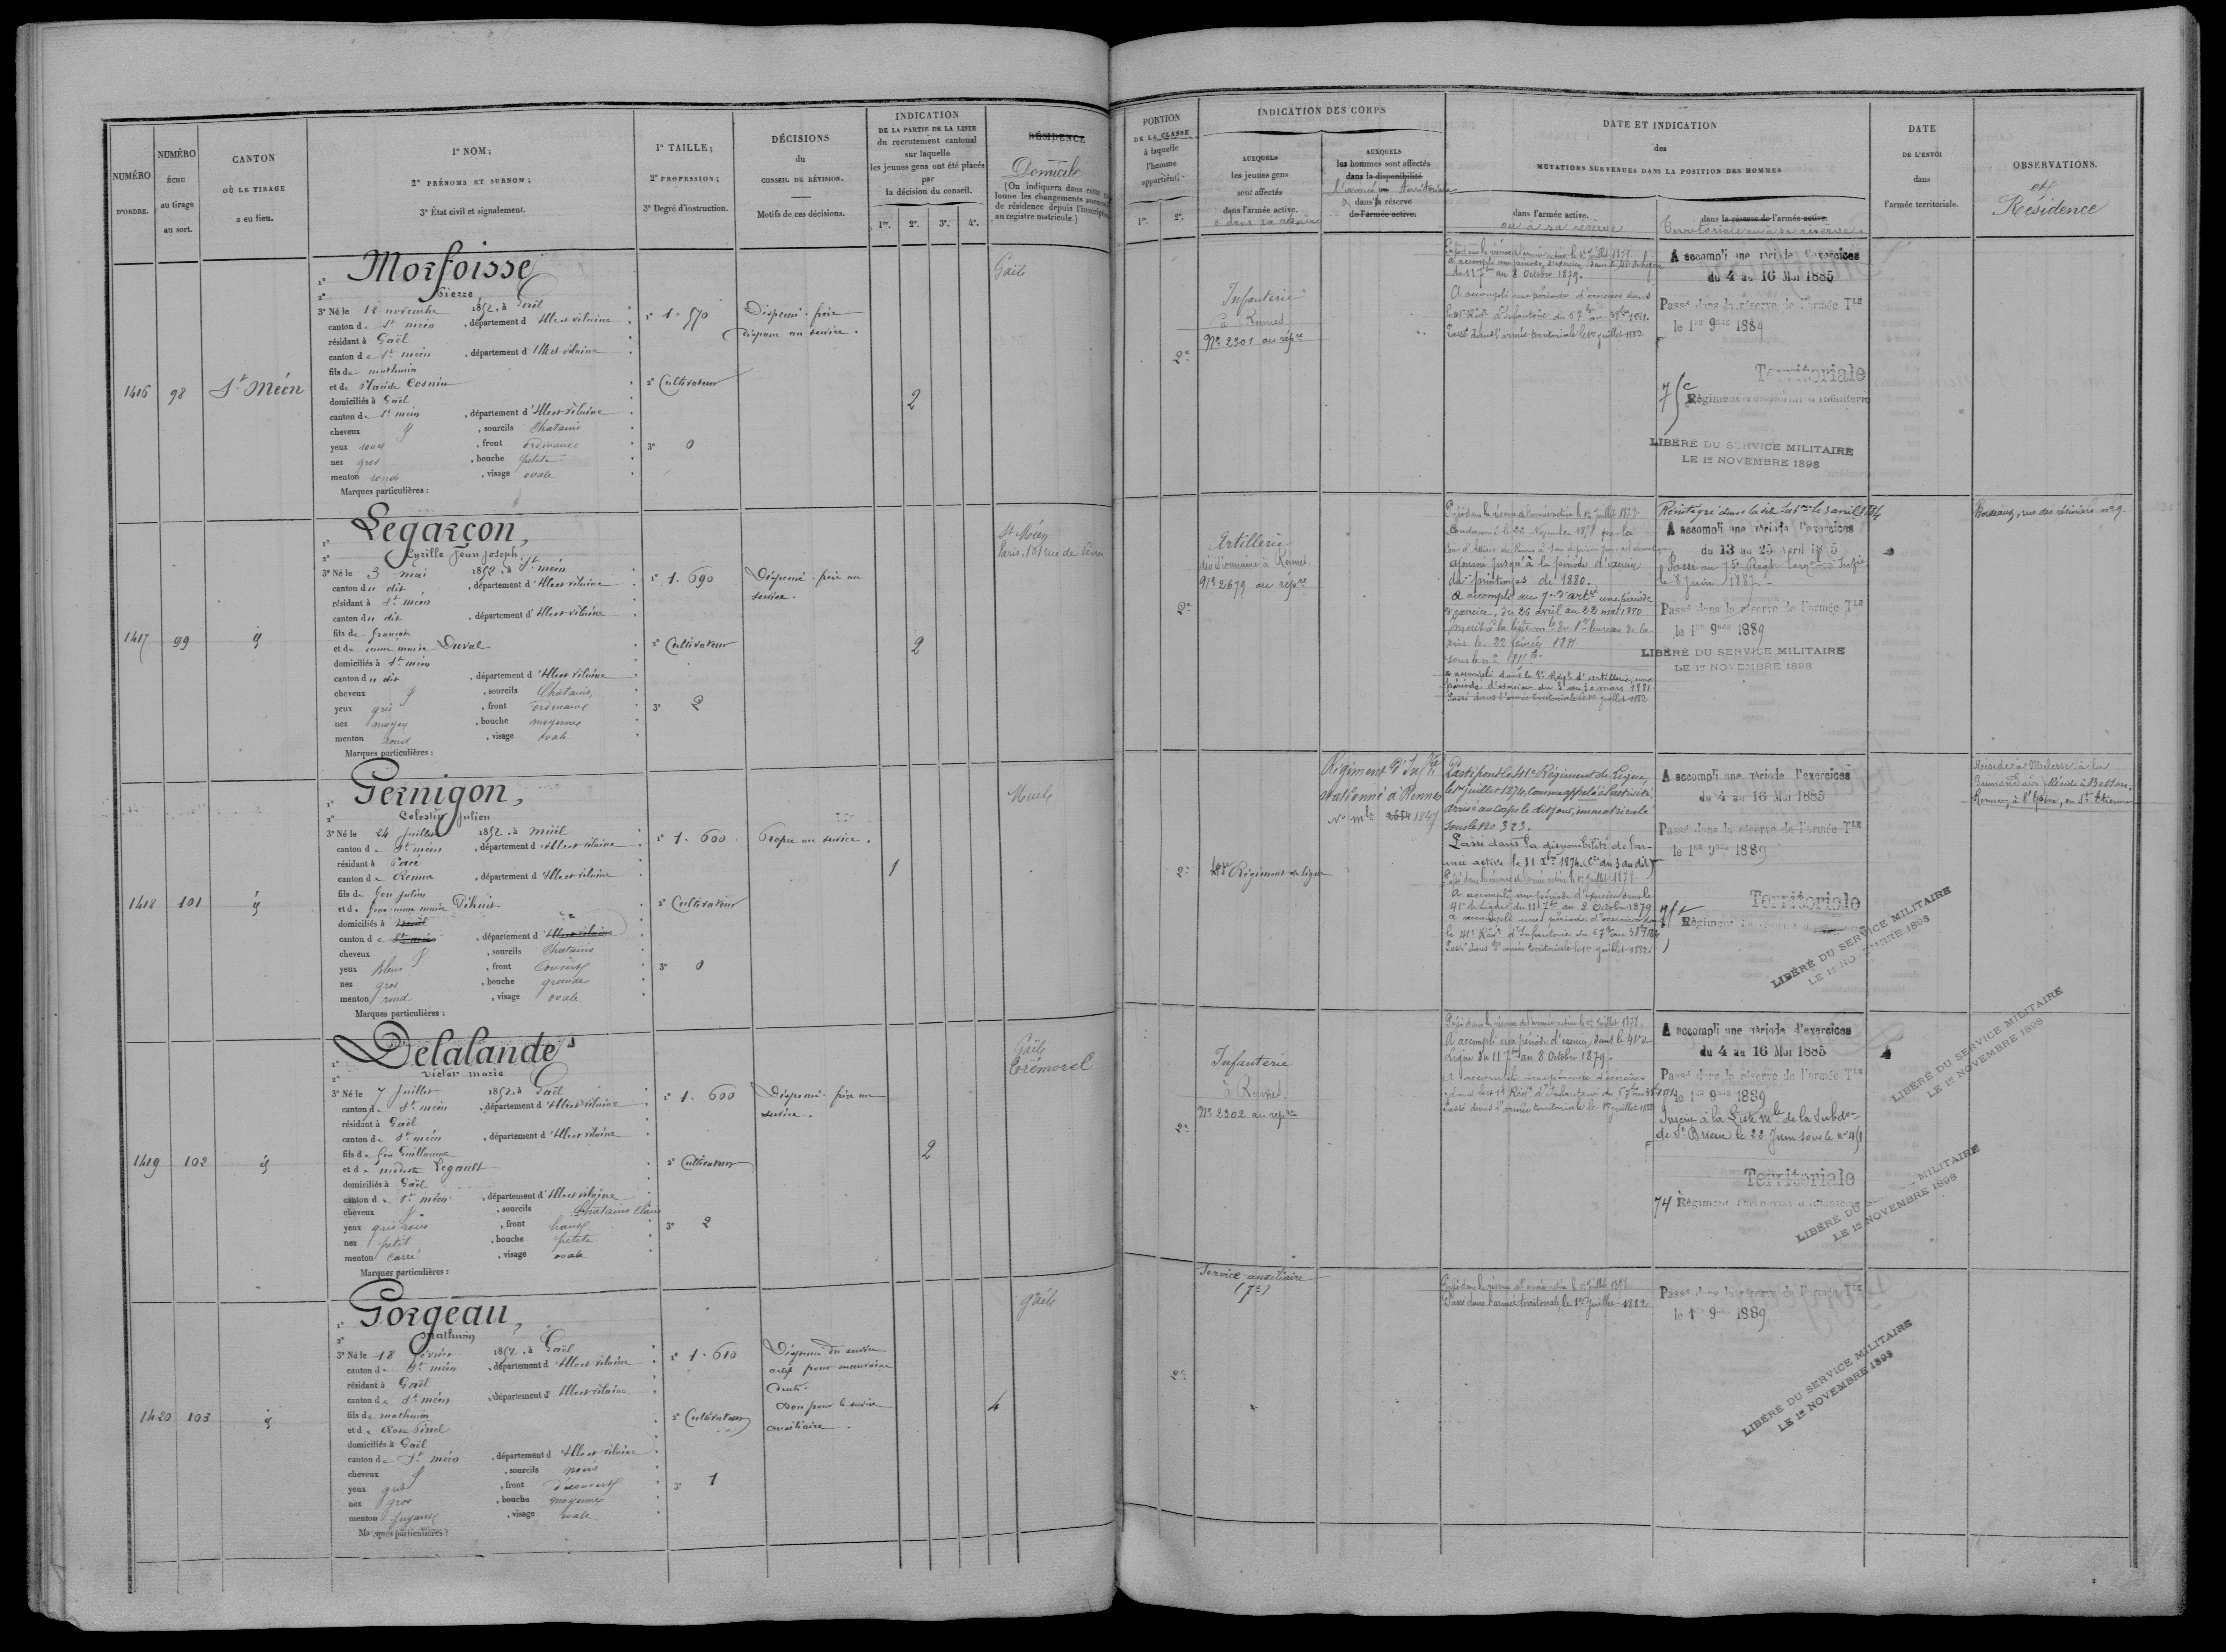 NUMÉRO
D'ORDRE.
NUMÉRO
ÉCHU
au tirage
au sort.
CANTON
OÙ LE TIRAGE
a eu lieu.
1° NOM;
2° PRÉNOMS ET SURNOM;
3° État civil et signalement.
1° TAILLE;
2° PROFESSION;
3° Degré d'instruction.
DÉCISIONS
du
CONSEIL DE RÉVISION.
Motifs de ces décisions.
INDICATION
DE LA PARTIE DE LA LISTE
du recrutement cantonal
sur laquelle
les jeunes gens ont été placés
par
la décision du conseil.
1re. 2e. 3e. 4e.
RÉSIDENCE
Domicile
(On indiquera dans cette
lonne les changements
de résidence depuis l'inscription
au registre matricule.)
PORTION
DE LA CLASSE
à laquelle
l'homme
appartient.
1re. 2e.
INDICATION DES CORPS
AUXQUELS
les jeunes gens
sont affectés
dans l'armée active.
& dans sa réserve
AUXQUELS
les hommes sont affectés
dans la disponibilité
l'armée territoriale
dans sa réserve
de l'armée active.
DATE ET INDICATION
des
MUTATIONS SURVENUES DANS LA POSITION DES HOMMES
dans l'armée active.
ou à sa réserve
dans la réserve de l'armée active.
Territoriale ou à sa réserve.
DATE
DE L'ENVOI
dans
l'armée territoriale.
OBSERVATIONS.
et
Résidence
1416 98 St Méen
1° Morfoisse
2° Pierre
3° Né le 12 novembre 1852, à Gaël
canton de St méen, département d'Ille et vilaine
résidant à Gaël
canton de St méen, département d'Ille et vilaine
fils de mathurin
et de Cosnin
domiciliés à Gaël
canton de St méen, département d'Ille et vilaine
cheveux, sourcils Chatains
yeux roux, front ordinaire
nez gros, bouche petite
menton rond, visage ovale
Marques particulières :
1° 1. 570
2° Cultivateur
3° 0
Dispensé. frère
au service.
2
Gaël
2e
Infanterie
à Rennes
No 2301 au répre
Passé dans la réserve de l'armée active le 1er Juillet
du 11 7bre au 8 Octobre 1879.
A accompli une période d'exercices dans
Passé dans l'armée territoriale le 1er juillet 1882
A accompli une période d'exercices
du 4 au 16 Mai 1885
Passé dans la réserve de l'armée Tle
le 1er 9bre 1889
Territoriale
Régiment territorial d'Infanterie
LIBÉRÉ DU SERVICE MILITAIRE
LE 1er NOVEMBRE 1898
1417 99 id
1° Legarçon,
2° Cyrille Jean Joseph.
3° Né le 3 mai 1852, à St méen
canton du dit, département d'Ille et vilaine
résidant à St méen
canton du dit, département d'Ille et vilaine
fils de françois
et de marie Duval
domiciliés à St méen
canton du dit, département d'Ille et vilaine
cheveux, sourcils Chatains
yeux gris, front ordinaire
nez moyen, bouche moyenne
menton rond, visage ovale
Marques particulières :
1° 1. 690
2° Cultivateur
3° 2
Dispensé. frère au
service.
2
St Méen
Paris, 131 rue de
2e
Artillerie
à Rennes
No 2679 au répre
Passé dans la réserve de l'armée active le 1er Juillet
Condamné le 22 Novembre 1878 par la
Cour d'Assises de
ajourné jusqu'à la période d'exercice
du printemps de 1880.
A accompli au 7e d'artie une période
d'exercice, du 26 avril au 22 mai 1880
Inscrit à la liste mle du 1er bureau de la
Seine le 22 février 1881
sous le no
a accompli dans le Régt d'artillerie, une
période d'exercices du 3 au 30 mars 1881
Passé dans l'armée territoriale le 1er juillet 1882
Réintégré dans la dite le 3 avril 1884
A accompli une période d'exercices
du 13 au 25 avril 1885
Passé au 75e Régt d'Infie
le 8 Juin 1887
Passé dans la réserve de l'armée Tle
le 1er 9bre 1889
LIBÉRÉ DU SERVICE MILITAIRE
LE 1er NOVEMBRE 1898
Bordeaux, rue des no 9
1418 101 id
1° Gernigon,
2° Celestin Julien
3° Né le 24 Juillet 1852, à muël
canton de St méen, département d'Ille et vilaine
résidant à Pacé
canton de Rennes, département d'Ille et vilaine
fils de feu Julien
et de feue marie
domiciliés à
canton de St méen, département d'Ille et vilaine
cheveux, sourcils Chatains
yeux bleus, front couvert
nez gros, bouche grande
menton rond, visage ovale
Marques particulières :
1° 1. 600
2° Cultivateur
3° 0
Propre au service.
1
Muel
2e
41e Régiment de ligne
Régiment d'Infie
stationné à Rennes
No mle 2684 1847
Parti pour le 41e Régiment de Ligne,
le 1er juillet 1874, comme appelé à l'activité
Arrivé au Corps le dit jour, immatriculé
sous le No 323.
Passé dans la disponibilité de l'ar-
mée active le 31 Xbre 1874. (Cre du 3 du dit)
Passé dans la réserve de l'armée active le 1er Juillet 1879
A accompli une période d'exercices dans le
41e de Ligne du 11 7bre au 8 Octobre 1879
a accompli une période d'exercices dans
le 41e Régt d'Infanterie du
Passé dans l'armée territoriale le 1er juillet 1882
A accompli une période d'exercices
du 4 au 16 Mai 1885
Passé dans la réserve de l'armée Tle
le 1er 9bre 1889
Territoriale
Régiment territorial
LIBÉRÉ DU SERVICE MILITAIRE
LE 1er NOVEMBRE 1898
Réside à Melesse à la
Réside à Betton,
Rennes, à l'Hôpn, en St Etienne
1419 102 id
1° Delalande
2° victor marie
3° Né le 7 Juillet 1852, à Gaël
canton de St méen, département d'Ille et vilaine
résidant à Gaël
canton de St méen, département d'Ille et vilaine
fils de feu Guillaume
et de modeste Legault
domiciliés à Gaël
canton de St méen, département d'Ille et vilaine
cheveux, sourcils Chatains clairs
yeux gris roux, front haut
nez petit, bouche petite
menton carré, visage ovale
Marques particulières :
1° 1. 600
2° Cultivateur
3° 2
Dispensé. frère au
service.
2
Gaël
Trémorel
2e
Infanterie
à Rennes.
No 2302 au répre
Passé dans la réserve de l'armée active le 1er Juillet
A accompli une période d'exercices dans le 41e de
Ligne du 11 7bre au 8 Octobre 1879.
A accompli une période d'exercices
dans le 41e Régt d'Infanterie du
Passé dans l'armée territoriale le 1er juillet 1882
A accompli une période d'exercices
du 4 au 16 Mai 1885
Passé dans la réserve de l'armée Tle
le 1er 9bre 1889
Inscrit à la Liste mle de la Subdon
de St Brieuc le 22 Juin sous le no 451
Territoriale
74 Régiment territorial d'Infanterie
LIBÉRÉ DU SERVICE MILITAIRE
LE 1er NOVEMBRE 1898
LIBÉRÉ DU SERVICE MILITAIRE
LE 1er NOVEMBRE 1898
1420 103 id
1° Gorgeau,
2° Mathurin
3° Né le 18 février 1852, à Gaël
canton de St méen, département d'Ille et vilaine
résidant à Gaël
canton de St méen, département d'Ille et vilaine
fils de mathurin
et de Rose Pinel
domiciliés à Gaël
canton de St méen, département d'Ille et vilaine
cheveux, sourcils noirs
yeux gris, front découvert
nez gros, bouche moyenne
menton fuyant, visage ovale
Marques particulières :
1° 1. 610
2° Cultivateur
3° 1
Dispensé du service
actif pour mauvaise
denture.
Bon pour le service
auxiliaire.
4
Gaël
2e
Service auxiliaire
Passé dans la réserve de l'armée active le 1er Juillet
Passé dans l'armée territoriale, le 1er Juillet 1882
Passé dans la réserve de l'armée Tle
le 1er 9bre 1889
LIBÉRÉ DU SERVICE MILITAIRE
LE 1er NOVEMBRE 1898